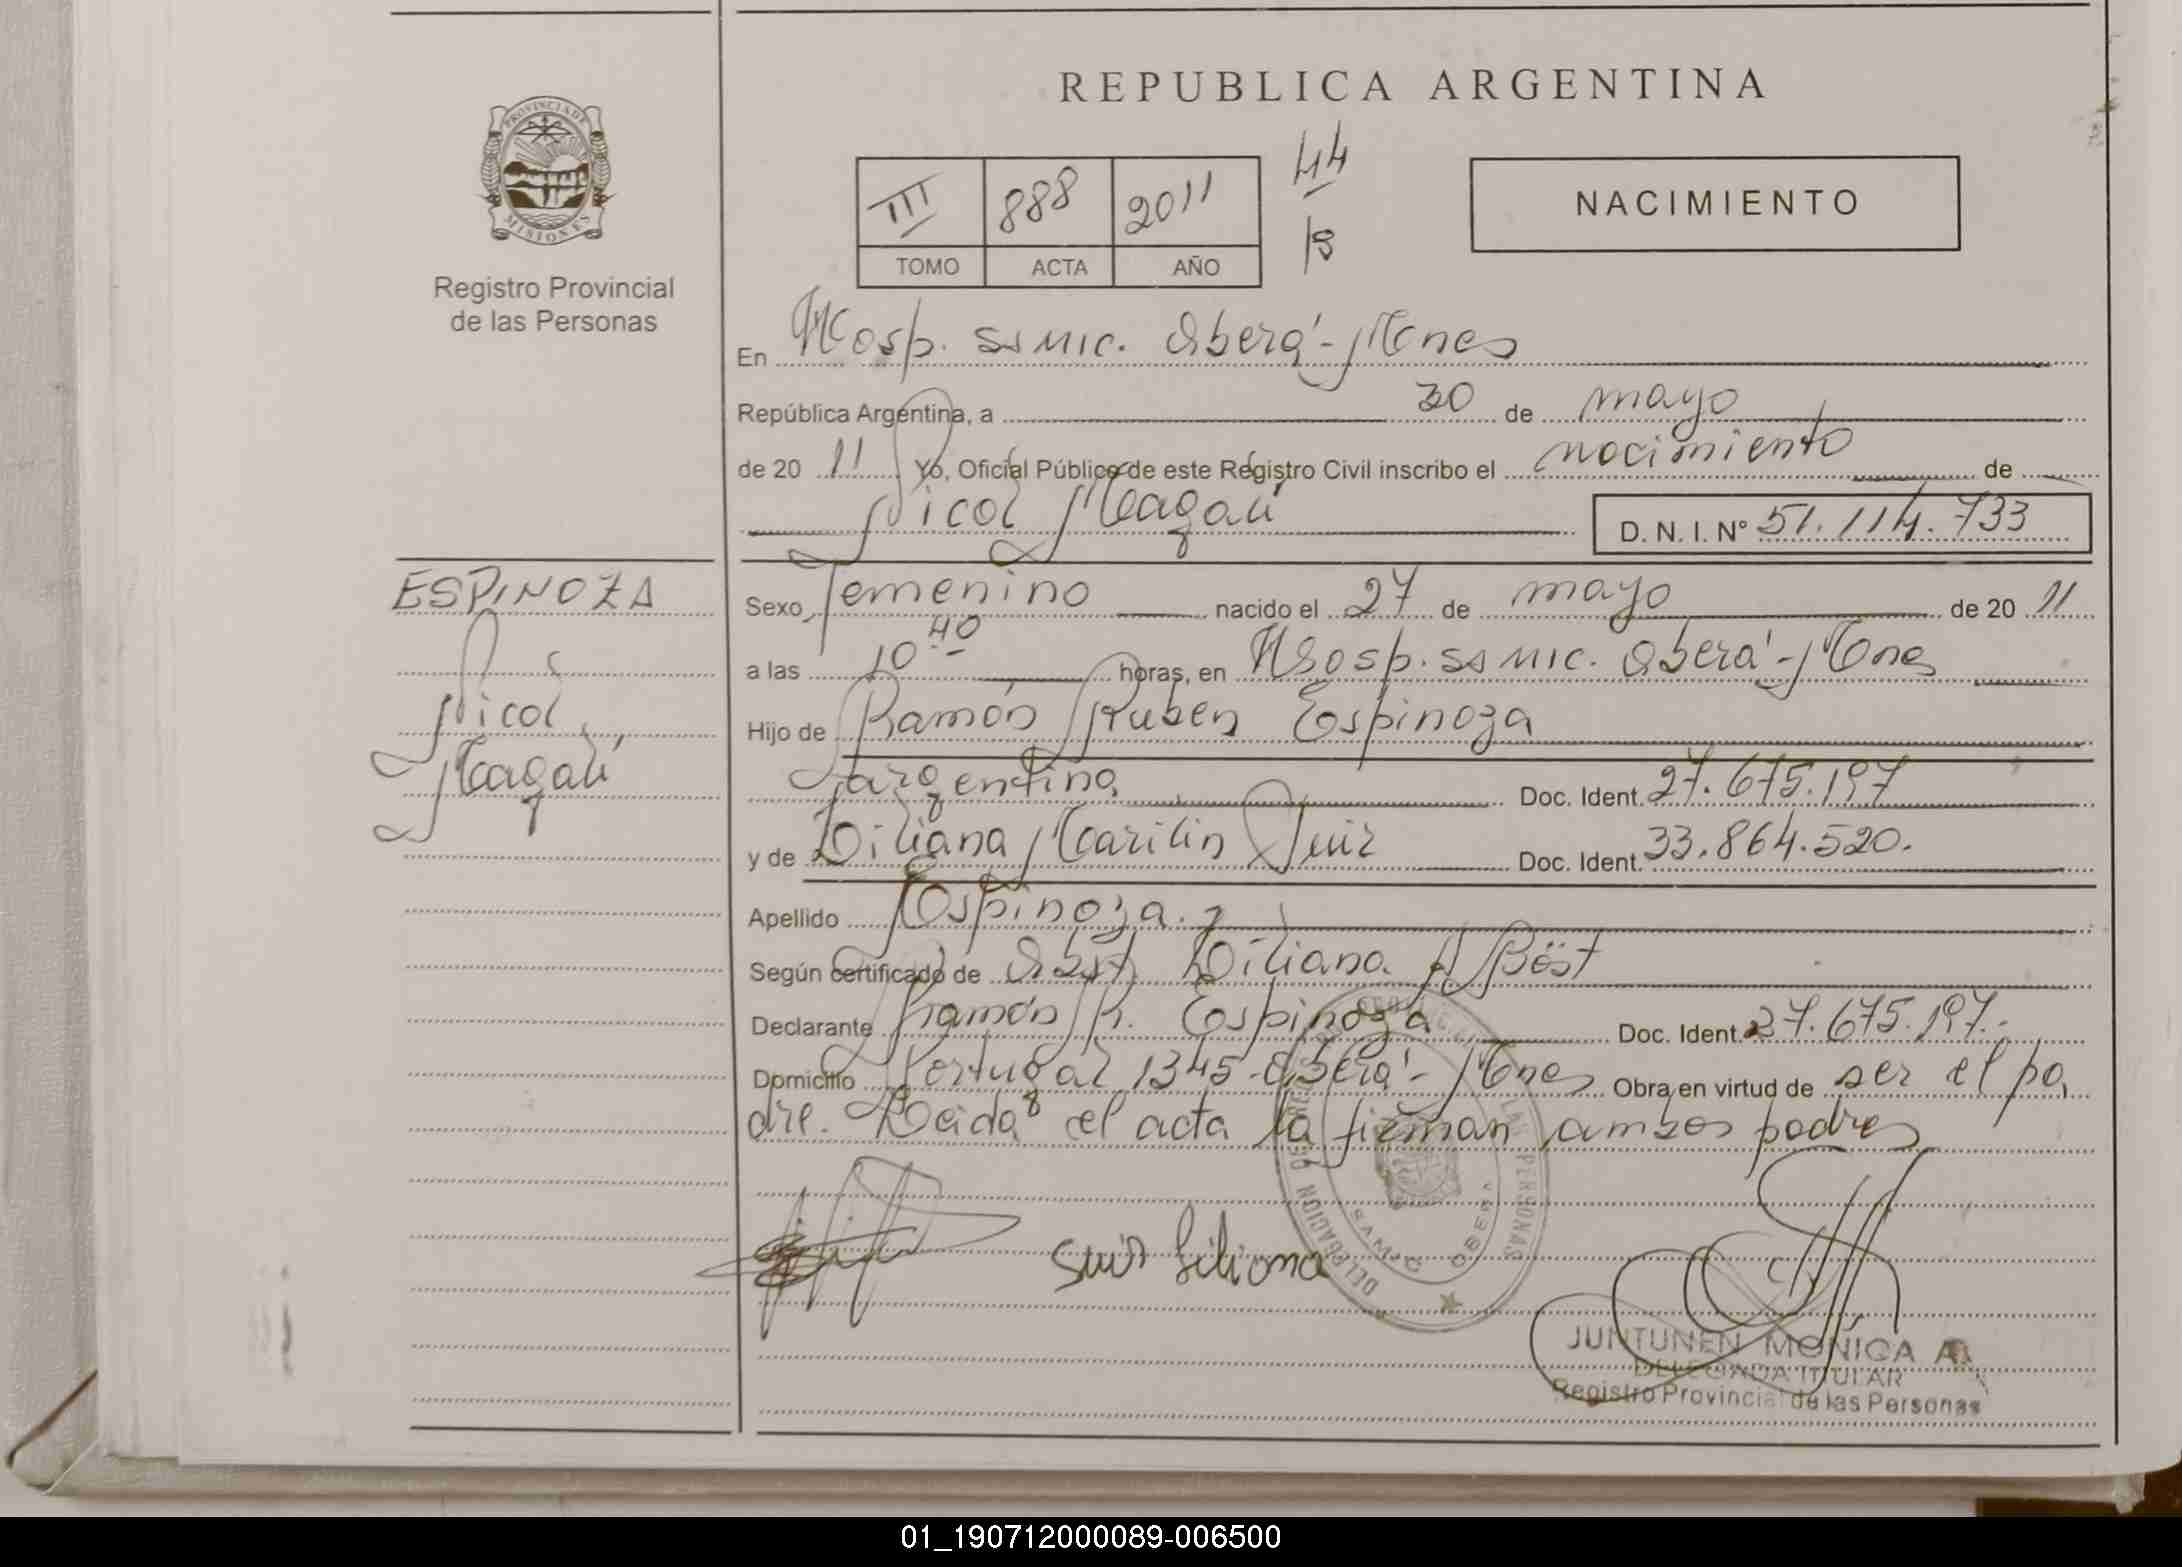 REPUBLICA ARGENTINA
PROVINCIA DE
MISIONES
Registro Provincial
de las Personas
III 888 2011
TOMO ACTA AÑO
44
NACIMIENTO
En Hosp. SSMIC. Oberá - Mnes
República Argentina, a 30 de mayo
de 20 11 Yo, Oficial Público de este Registro Civil inscribo el nacimiento de
Nicol Magalí D. N. I. Nº 51.114.733
ESPINOZA
Nicol
Magalí
Sexo Femenino nacido el 27 de mayo de 20 11
a las 10 40 horas, en Hosp. SSMIC. Oberá - Mnes
Hijo de Ramón Ruben Espinoza
argentino Doc. Ident. 27.675.197
y de Liliana Marilin Suir Doc. Ident. 33.864.520.
Apellido Espinoza.
Según certificado de Obst. Liliana A Böst
Declarante Ramón R. Espinoza Doc. Ident. 27.675.197.
Domicilio Portugal 1345 - Oberá - Mnes Obra en virtud de ser el pa
dre. Leida el acta la firman ambos padres
DELEGACION
PERSONAS
SAMIC OBERA
Suir Liliana
JUNTUNEN MONICA A.
DELEGADA TITULAR
Registro Provincial de las Personas
01_190712000089-006500